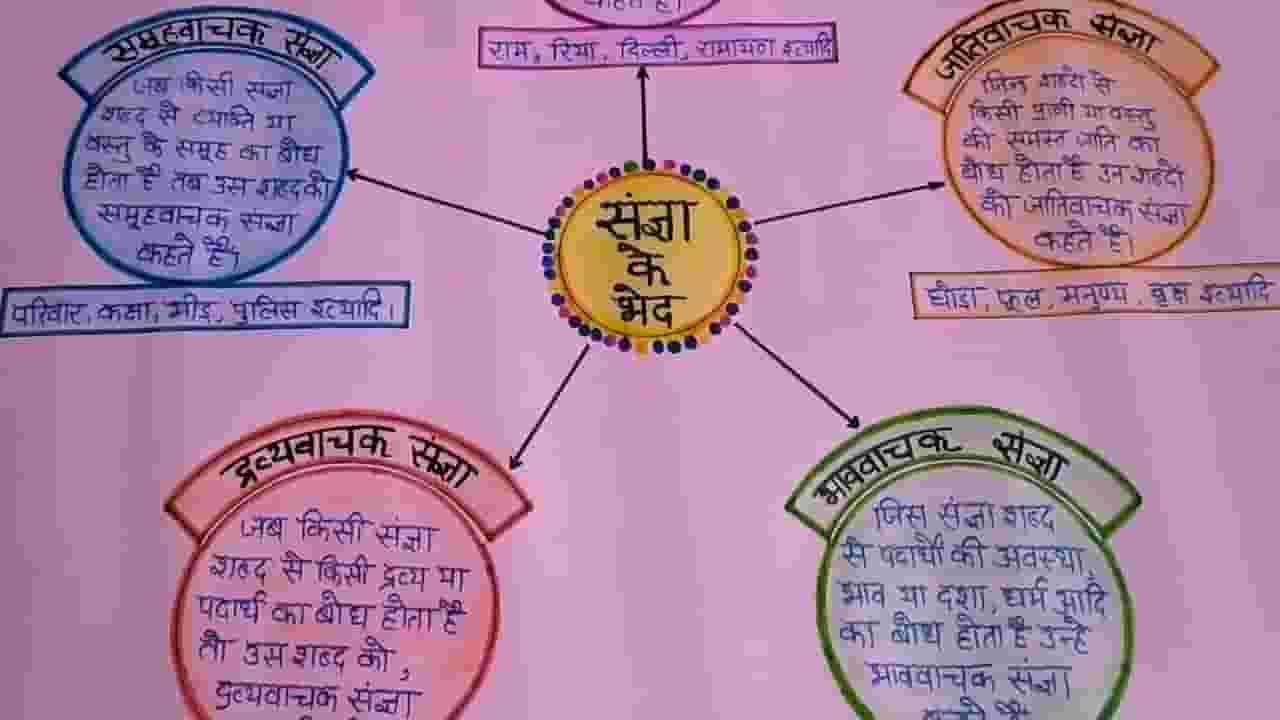 कहते हैं।
राम, रिया, दिल्ली, रामायण इत्यादि
समूहवाचक संज्ञा
जब किसी संज्ञा
शब्द से व्यक्ति या
वस्तु के समूह का बोध
होता है तब उस शब्द को
समूहवाचक संज्ञा
कहते हैं।
परिवार, कक्षा, भीड़, पुलिस इत्यादि।
जातिवाचक संज्ञा
जिन शब्दों से
किसी प्राणी या वस्तु
की समस्त जाति का
बोध होता है उन शब्दों
को जातिवाचक संज्ञा
कहते हैं।
घोड़ा, फूल, मनुष्य, वृक्ष इत्यादि
संज्ञा
के
भेद
द्रव्यवाचक संज्ञा
जब किसी संज्ञा
शब्द से किसी द्रव्य या
पदार्थ का बोध होता है
तो उस शब्द को,
द्रव्यवाचक संज्ञा
भाववाचक संज्ञा
जिस संज्ञा शब्द
से पदार्थों की अवस्था,
भाव या दशा, धर्म आदि
का बोध होता है उन्हें
भाववाचक संज्ञा
कहते हैं